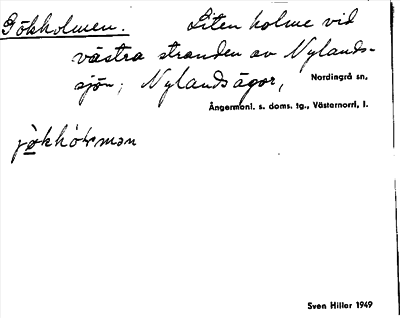 Gökholmen. Liten holme vid
västra stranden av Nylands-
sjön; Nylands ägor, Nordingrå sn,
Ångermanl. s. doms. tg., Västernorrl. l.
Sven Hillar 1949